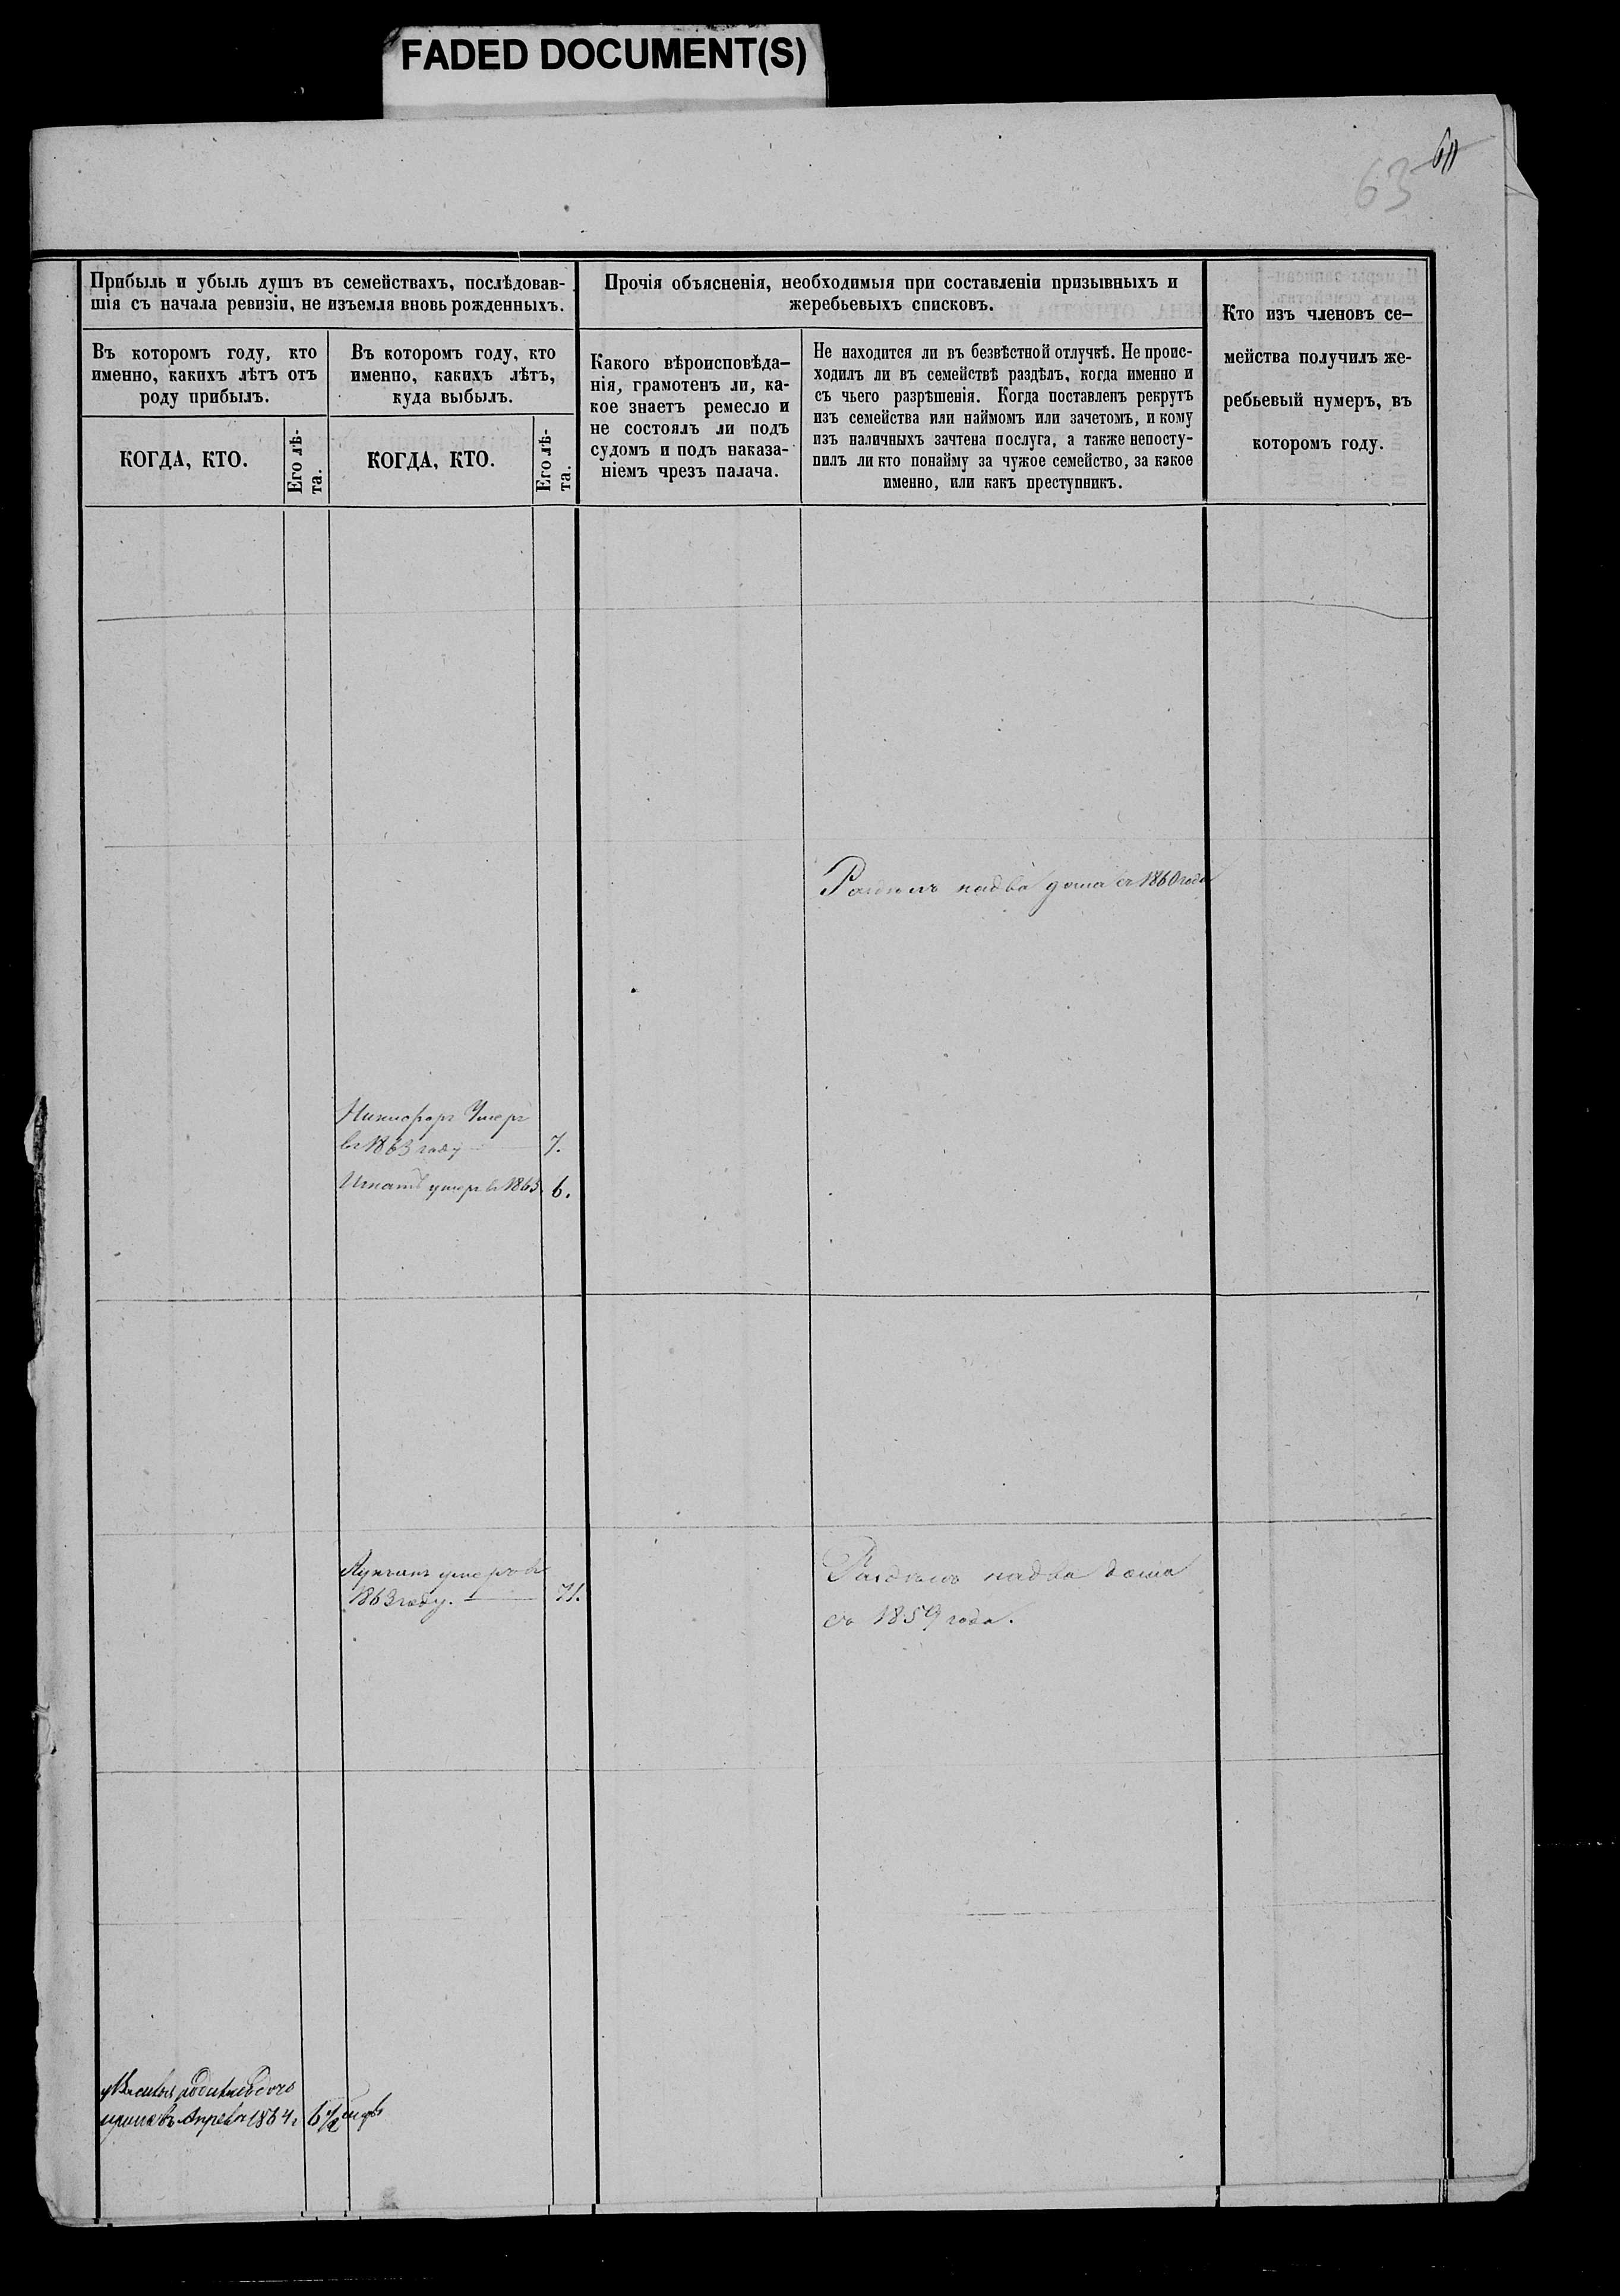 FADED DOCUMENT(S)
63
Прибыль и убыль душъ въ семействахъ, послѣдовав-
шія съ начала ревизіи, не изъемля вновь рожденныхъ.
Въ которомъ году, кто
именно, какихъ лѣтъ отъ
роду прибылъ.
КОГДА, КТО.
Его лѣ-
та.
Въ которомъ году, кто
именно, какихъ лѣтъ,
куда выбылъ.
КОГДА, КТО.
Его лѣ-
та.
Прочія объясненія, необходимыя при составленіи призывныхъ и
жеребьевыхъ списковъ.
Какого вѣроисповѣда-
нія, грамотенъ ли, ка-
кое знаетъ ремесло и
не состоялъ ли подъ
судомъ и подъ наказа-
ніемъ чрезъ палача.
Не находится ли въ безвѣстной отлучкѣ. Не проис-
ходилъ ли въ семействѣ раздѣлъ, когда именно и
съ чьего разрѣшенія. Когда поставленъ рекрутъ
изъ семейства или наймомъ или зачетомъ, и кому
изъ наличныхъ зачтена послуга, а также непосту-
пилъ ли кто понайму за чужое семейство, за какое
именно, или какъ преступникъ.
Кто изъ членовъ се-
мейства получилъ же-
ребьевый нумеръ, въ
которомъ году.
надва дома съ 1860 года
Никифоръ Умеръ
въ 1863 году 7.
умеръ в 1863 6.
умеръ въ
1863 году. 71.
надва дома
съ 1859 года.
1864 г 6 1/2